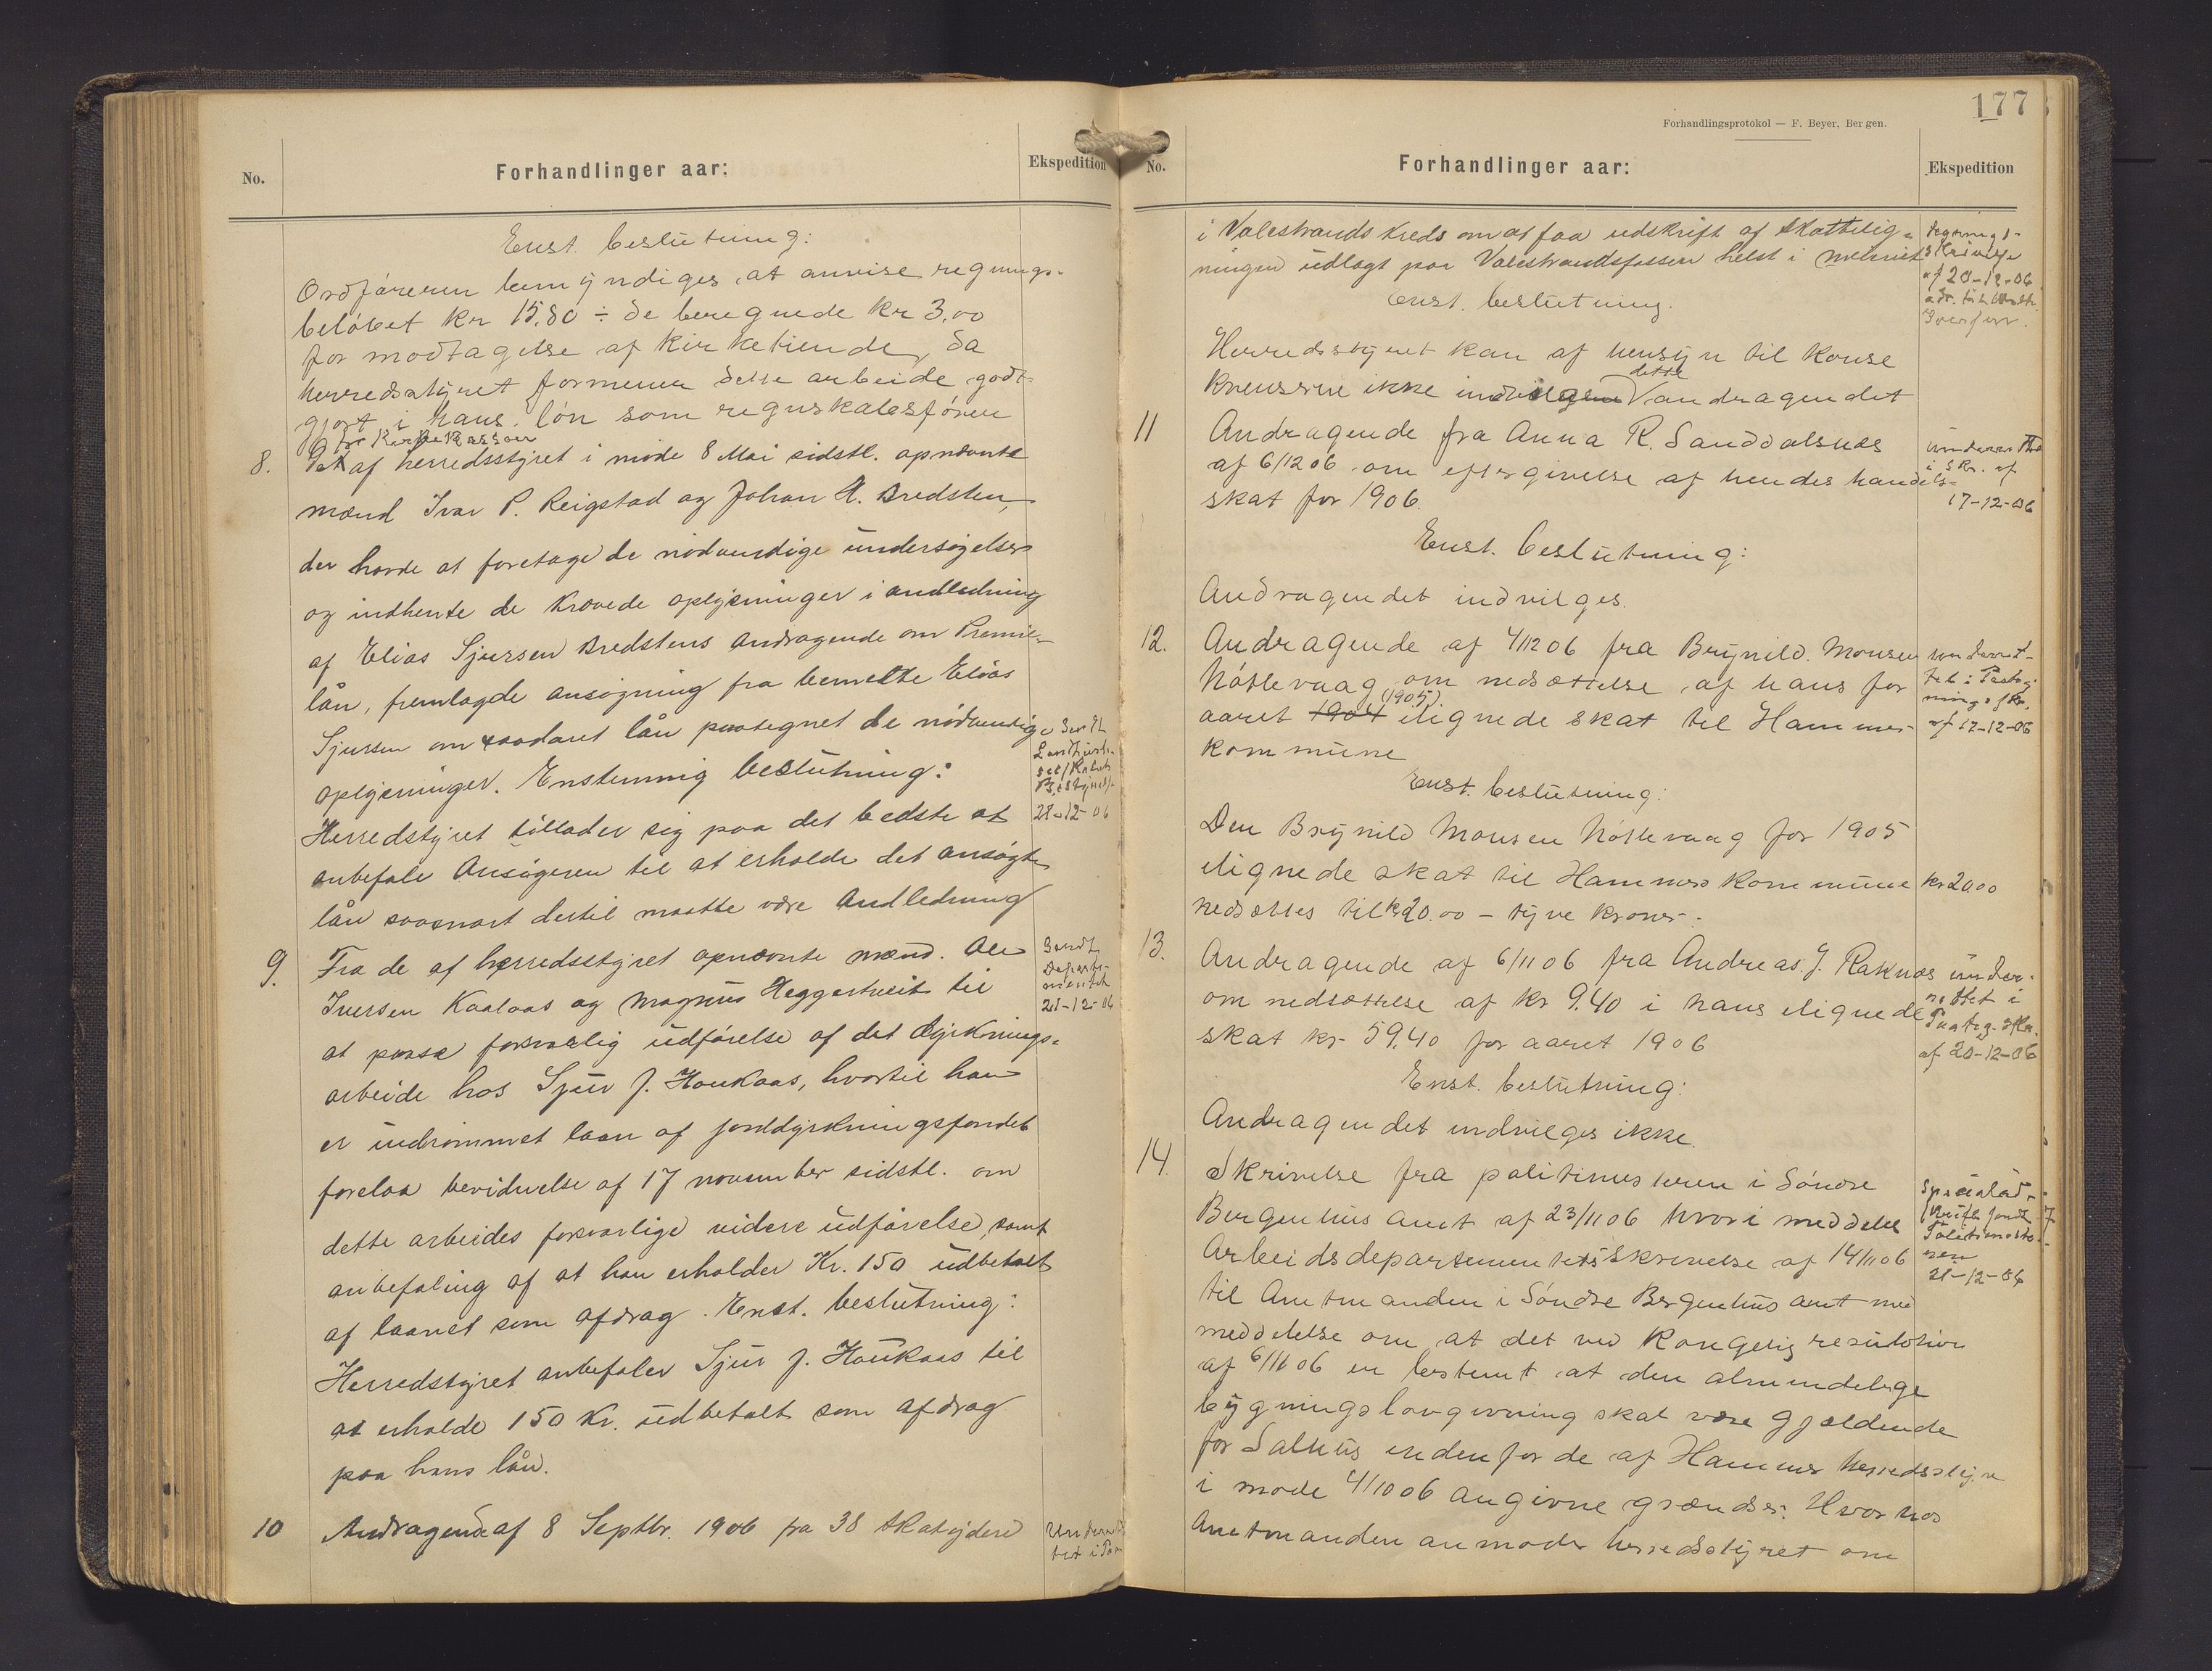 No.
Forhandlinger aar:
Ekspedition
Enst. beslutning:
Ordføreren bemyndiges at anvise regnings-
beløbet kr 15,80 ÷ de beregnede kr 3,00
for modtagelse af kirketiende, da
herredsstyret formener dette arbeide godt-
gjort i hans løn som regnskabsfører
for Kirkekassen
8. Det af herredsstyret i møde 8 Mai sidstl. opnævnte
mænd Ivar P. Reigstad og Johan H. Bredsten,
der havde at foretage de nødvendige undersøgelser
og indhente de krævede oplysninger i andledning
af Elias Sjursen Bredstens Andragende om Premie-
lån, fremlagde ansøgning fra bemeldte Elias
Sjursen om saadant lån paategnet de nødvendige
oplysninger. Enstemmig beslutning:
Herredstyret tillader sig paa det bedste at
anbefale Ansøgeren til at erholde det ansøgte
lån saasnart dertil maatte være Andledning
Sendt
28-12-06
9. Fra de af herredsstyret opnævnte mænd. Ole
Iversen Kaalaas og Magnus Heggertveit til
at passe forsvarlig udførelse af det dyrknings-
arbeide hos Sjur J. Houkaas, hvortil han
er indrømmet laan af jorddyrkningsfondet
forelaa bevidnelse af 17 november sidstl. om
dette arbeides forsvarlige videre udførelse, samt
anbefaling af at han erholder Kr. 150 udbetalt
af laanet som afdrag. Enst. beslutning:
Herredstyret anbefaler Sjur J. Houkaas til
at erholde 150 Kr. udbetalt som afdrag
paa hans lån.
Sendt
Departe-
mentet
21-12-06
10 Andragende af 8 Septbr. 1906 fra 38 skatydere
Underret-
tet i Paa
177
Forhandlingsprotokol — F. Beyer, Bergen.
No.
Forhandlinger aar:
Ekspedition
i Valestrands kreds om at faa udskrift af skattelig-
ningen udlagt paa Valestrandsfossen helst i
Enst. beslutning.
Herredsstyret kan af hensyn til konse
kvenserne ikke indvilge dette andragendet
tegnings-
skrivelse
af 20-12-06
11 Andragende fra Anna R. Sanddalsnes
af 6/12 06 om eftergivelse af hendes handels-
skat for 1906.
Enst. beslutning:
Andragendet indvilges.
underrettet
i Skr. af
17-12-06
12. Andragende af 4/12 06 fra Brynild Monsen
Nøttevaag om nedsættelse af hans for
aaret 1904 (1905) ilignede skat til Hammer
kommune
Enst. beslutning:
Den Brynild Monsen Nøttevaag for 1905
ilignede skat til Hammers kommune kr 20.00
nedsættes til kr 20.00 – tyve kroner.
underret-
tet i Paateg-
nings skr.
af 17-12-06
13. Andragende af 6/11 06 fra Andreas J. Raknes
om nedsættelse af kr 9.40 i hans ilignede
skat kr. 59.40 for aaret 1906
Enst. beslutning:
Andragendet indvilges ikke.
under-
rettet i
Paateg. skr.
af 20-12-06
14. Skrivelse fra politimesteren i Søndre
Bergenhus amt af 23/11 06 hvori meddeles
Arbeidsdepartementets skrivelse af 14/11 06
til Amtmanden i Søndre Bergenhus amt med
meddelelse om at det ved Kongelig resulotion
af 6/11 06 er bestemt at den almindelige
bygningslovgivning skal være gjældende
for Salhus indenfor de af Hammer herredsstyre
i møde 4/10 06 angivne grændser. Hvorhos
Amtmanden anmoder herredsstyret om
Specialud-
skrift sendt
Politimeste-
ren
21-12-06